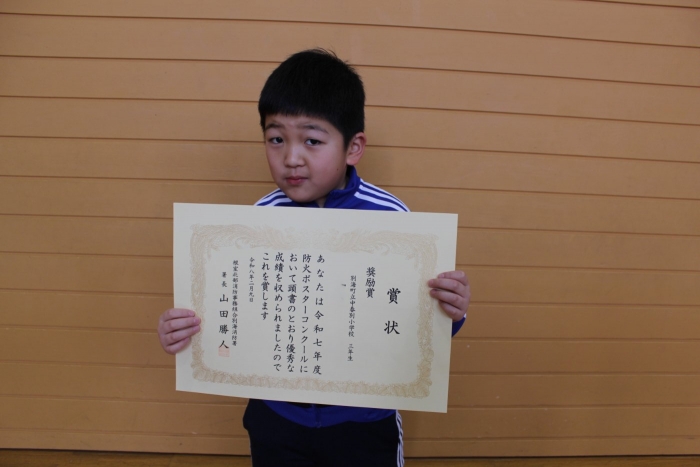 賞状
奨励賞
別海町立中春別小学校 三年生
あなたは令和七年度
防火ポスターコンクールに
おいて頭書のとおり優秀な
成績を収められましたので
これを賞します
令和八年二月九日
根室北部消防事務組合別海消防署
署長 山田勝人